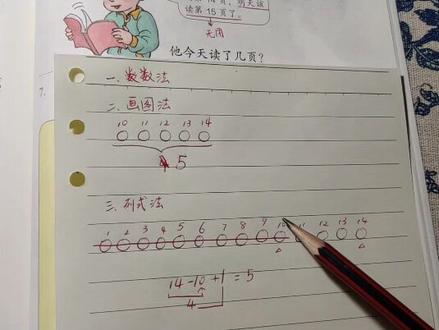 读第 15 页了。
无用
他今天读了几页?
7.
一.数数法
二.画图法
10 11 12 13 14
5
三.列式法
1 2 3 4 5 6 7 8 9 10 11 12 13 14
14-10+1=5
4